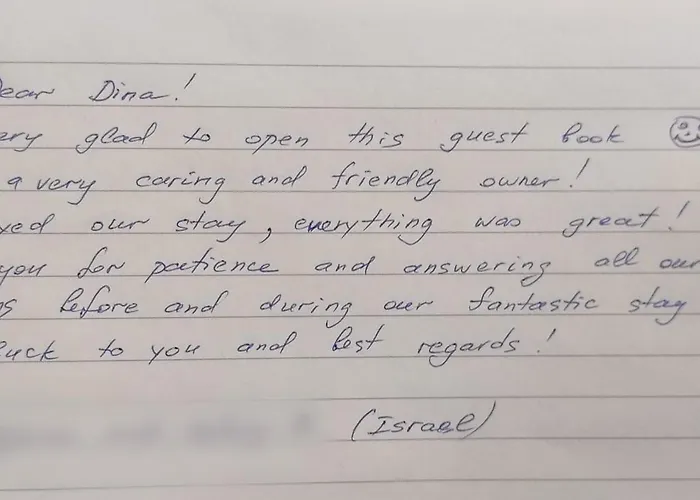 Dear Dina!
very glad to open this guest book
a very caring and friendly owner!
our stay, everything was great!
you for patience and answering all our
before and during our fantastic stay
luck to you and best regards!
(Israel)